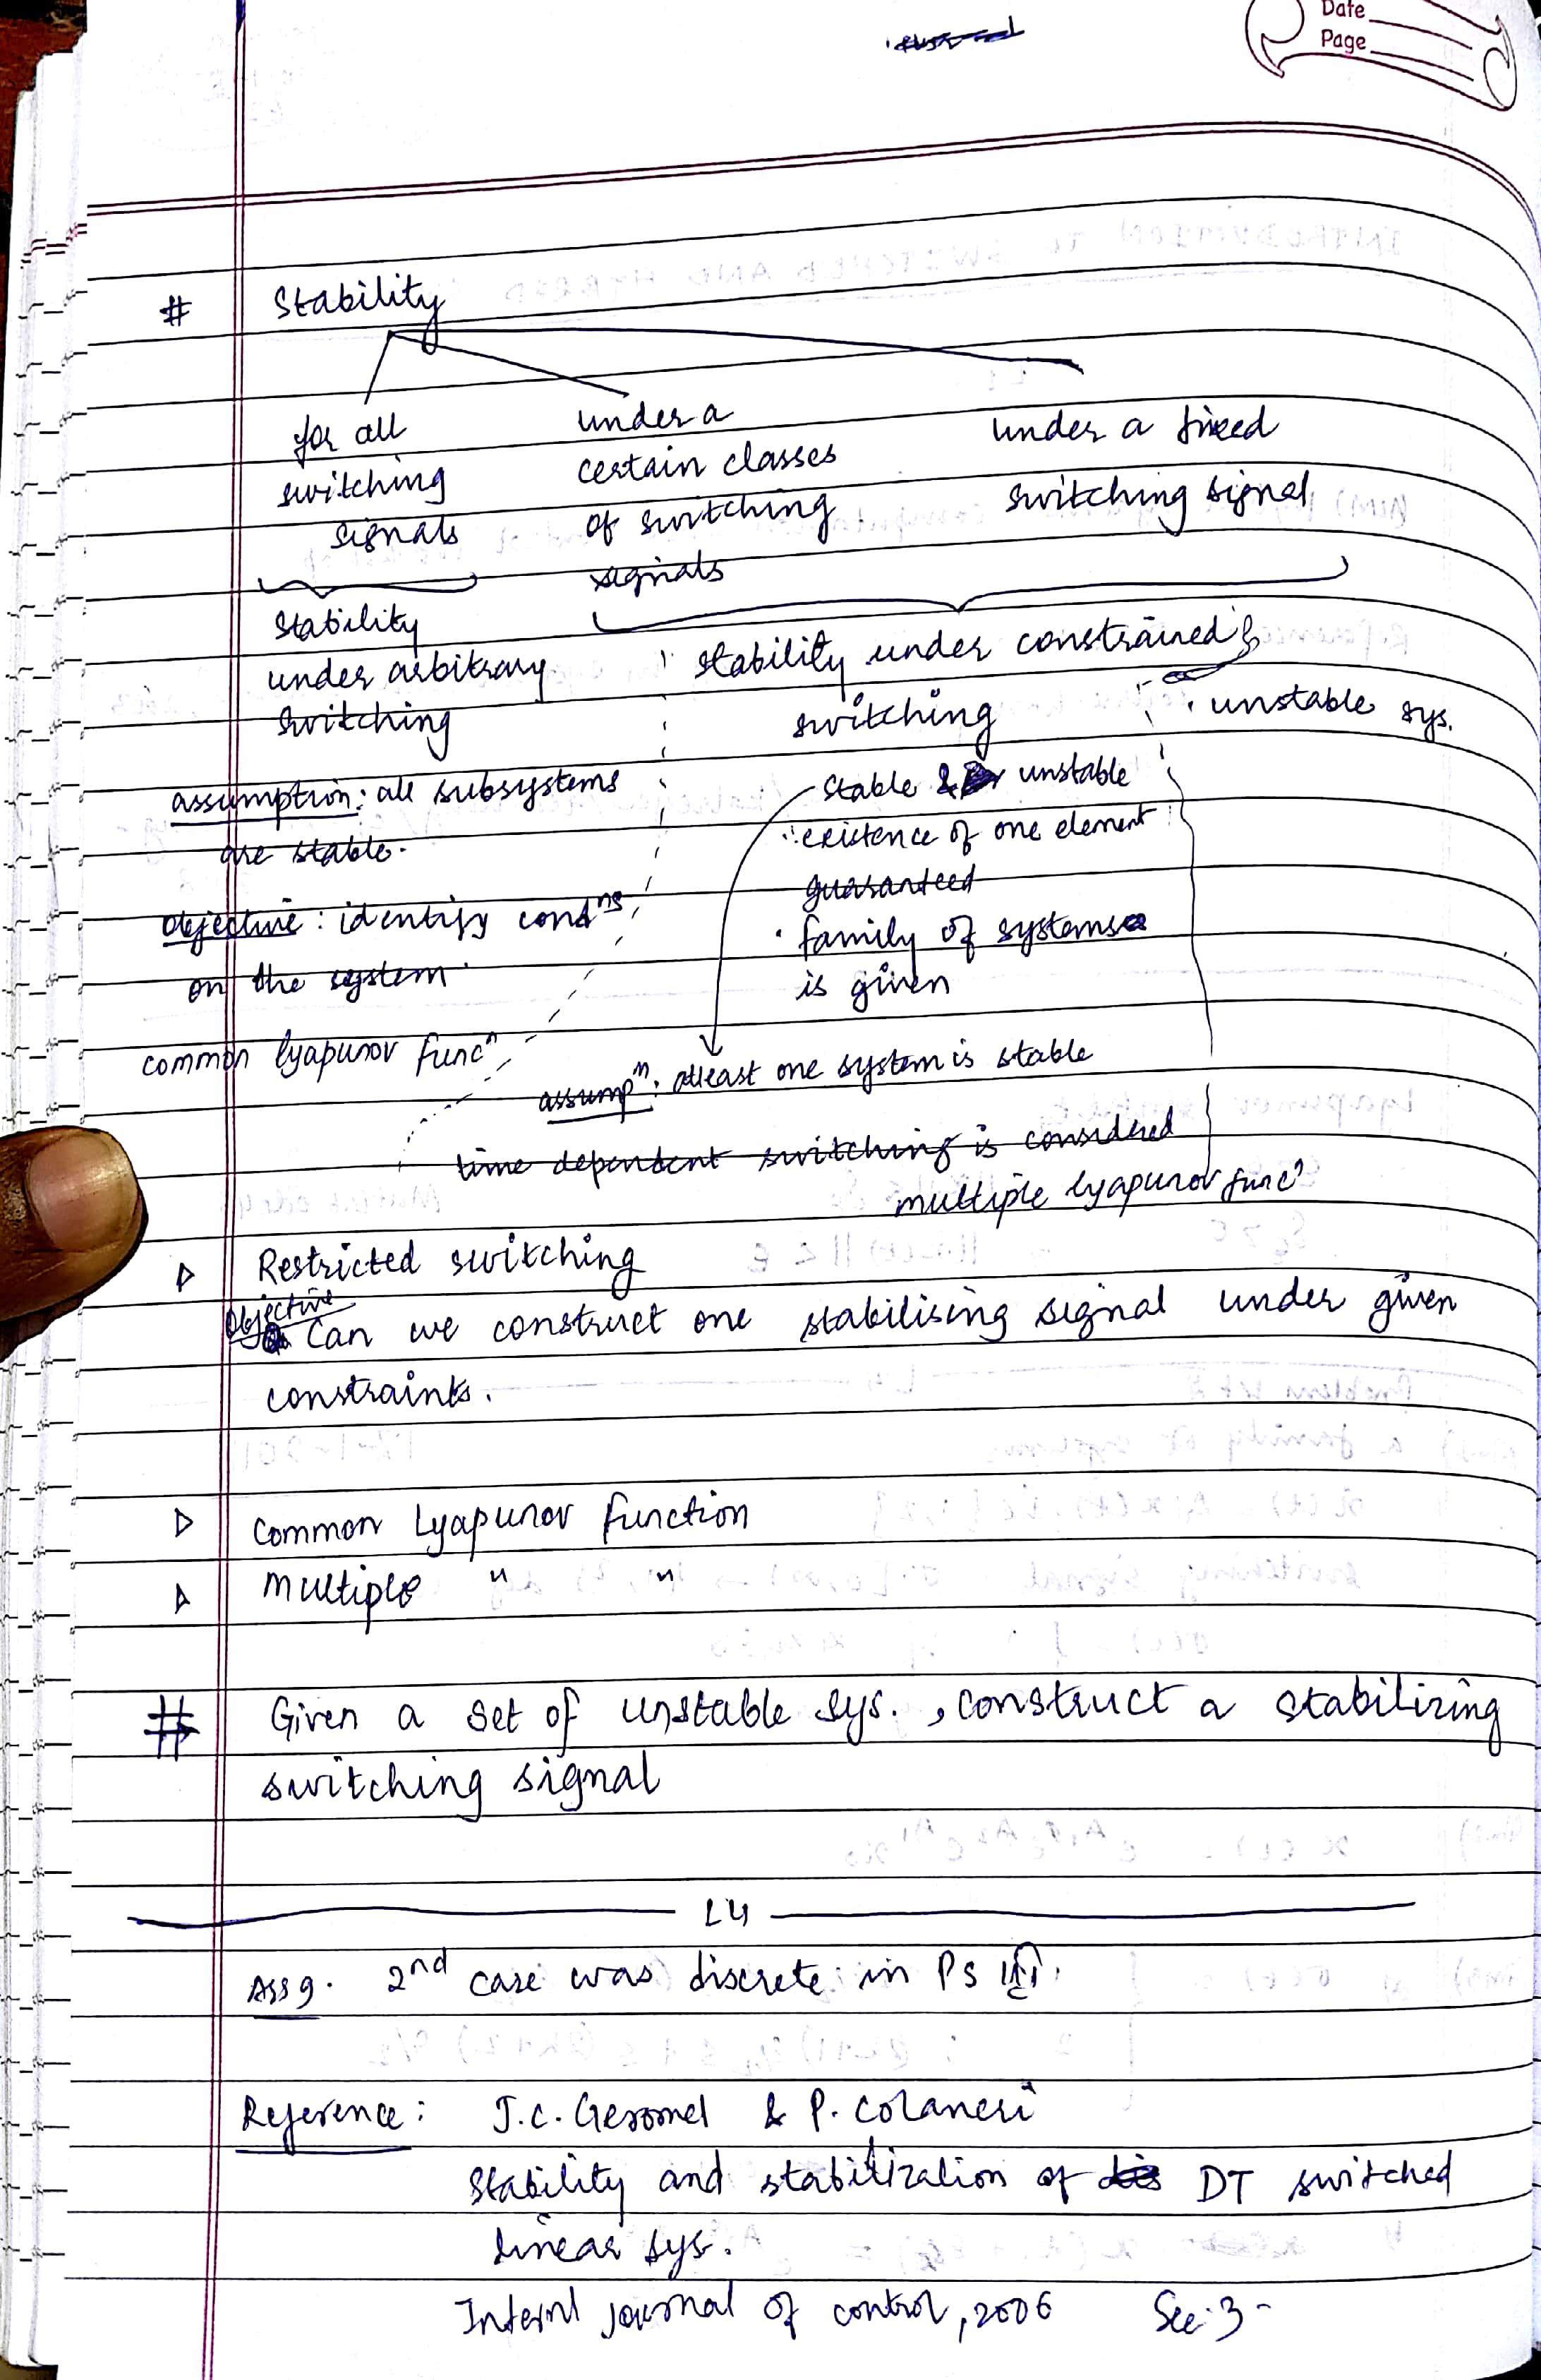 Date
Page
# Stability
for all
switching
signals
under a
certain classes
of switching
signals
under a fixed
switching signal
Stability
under arbitrary
switching
assumption: all subsystems
are stable.
objective: identify condns
on the system.
common lyapunov funcn
stability under constrained
switching
stable & unstable
existence of one element
guaranteed
· family of systems
is given
assumpn: atleast one system is stable
time dependent switching is considered
multiple lyapunov funcn
· unstable sys.
▷ Restricted switching
Objective
Can we construct one stabilising signal under given
constraints.
▷ Common Lyapunov function
▷ multiple " "
# Given a set of unstable sys., construct a stabilizing
switching signal
L4
Assg. 2nd case was discrete in PS
Reference: J.C. Geromel & P. Colaneri
Stability and stabilization of DT switched
linear sys.
Internl journal of control, 2006 Sec. 3